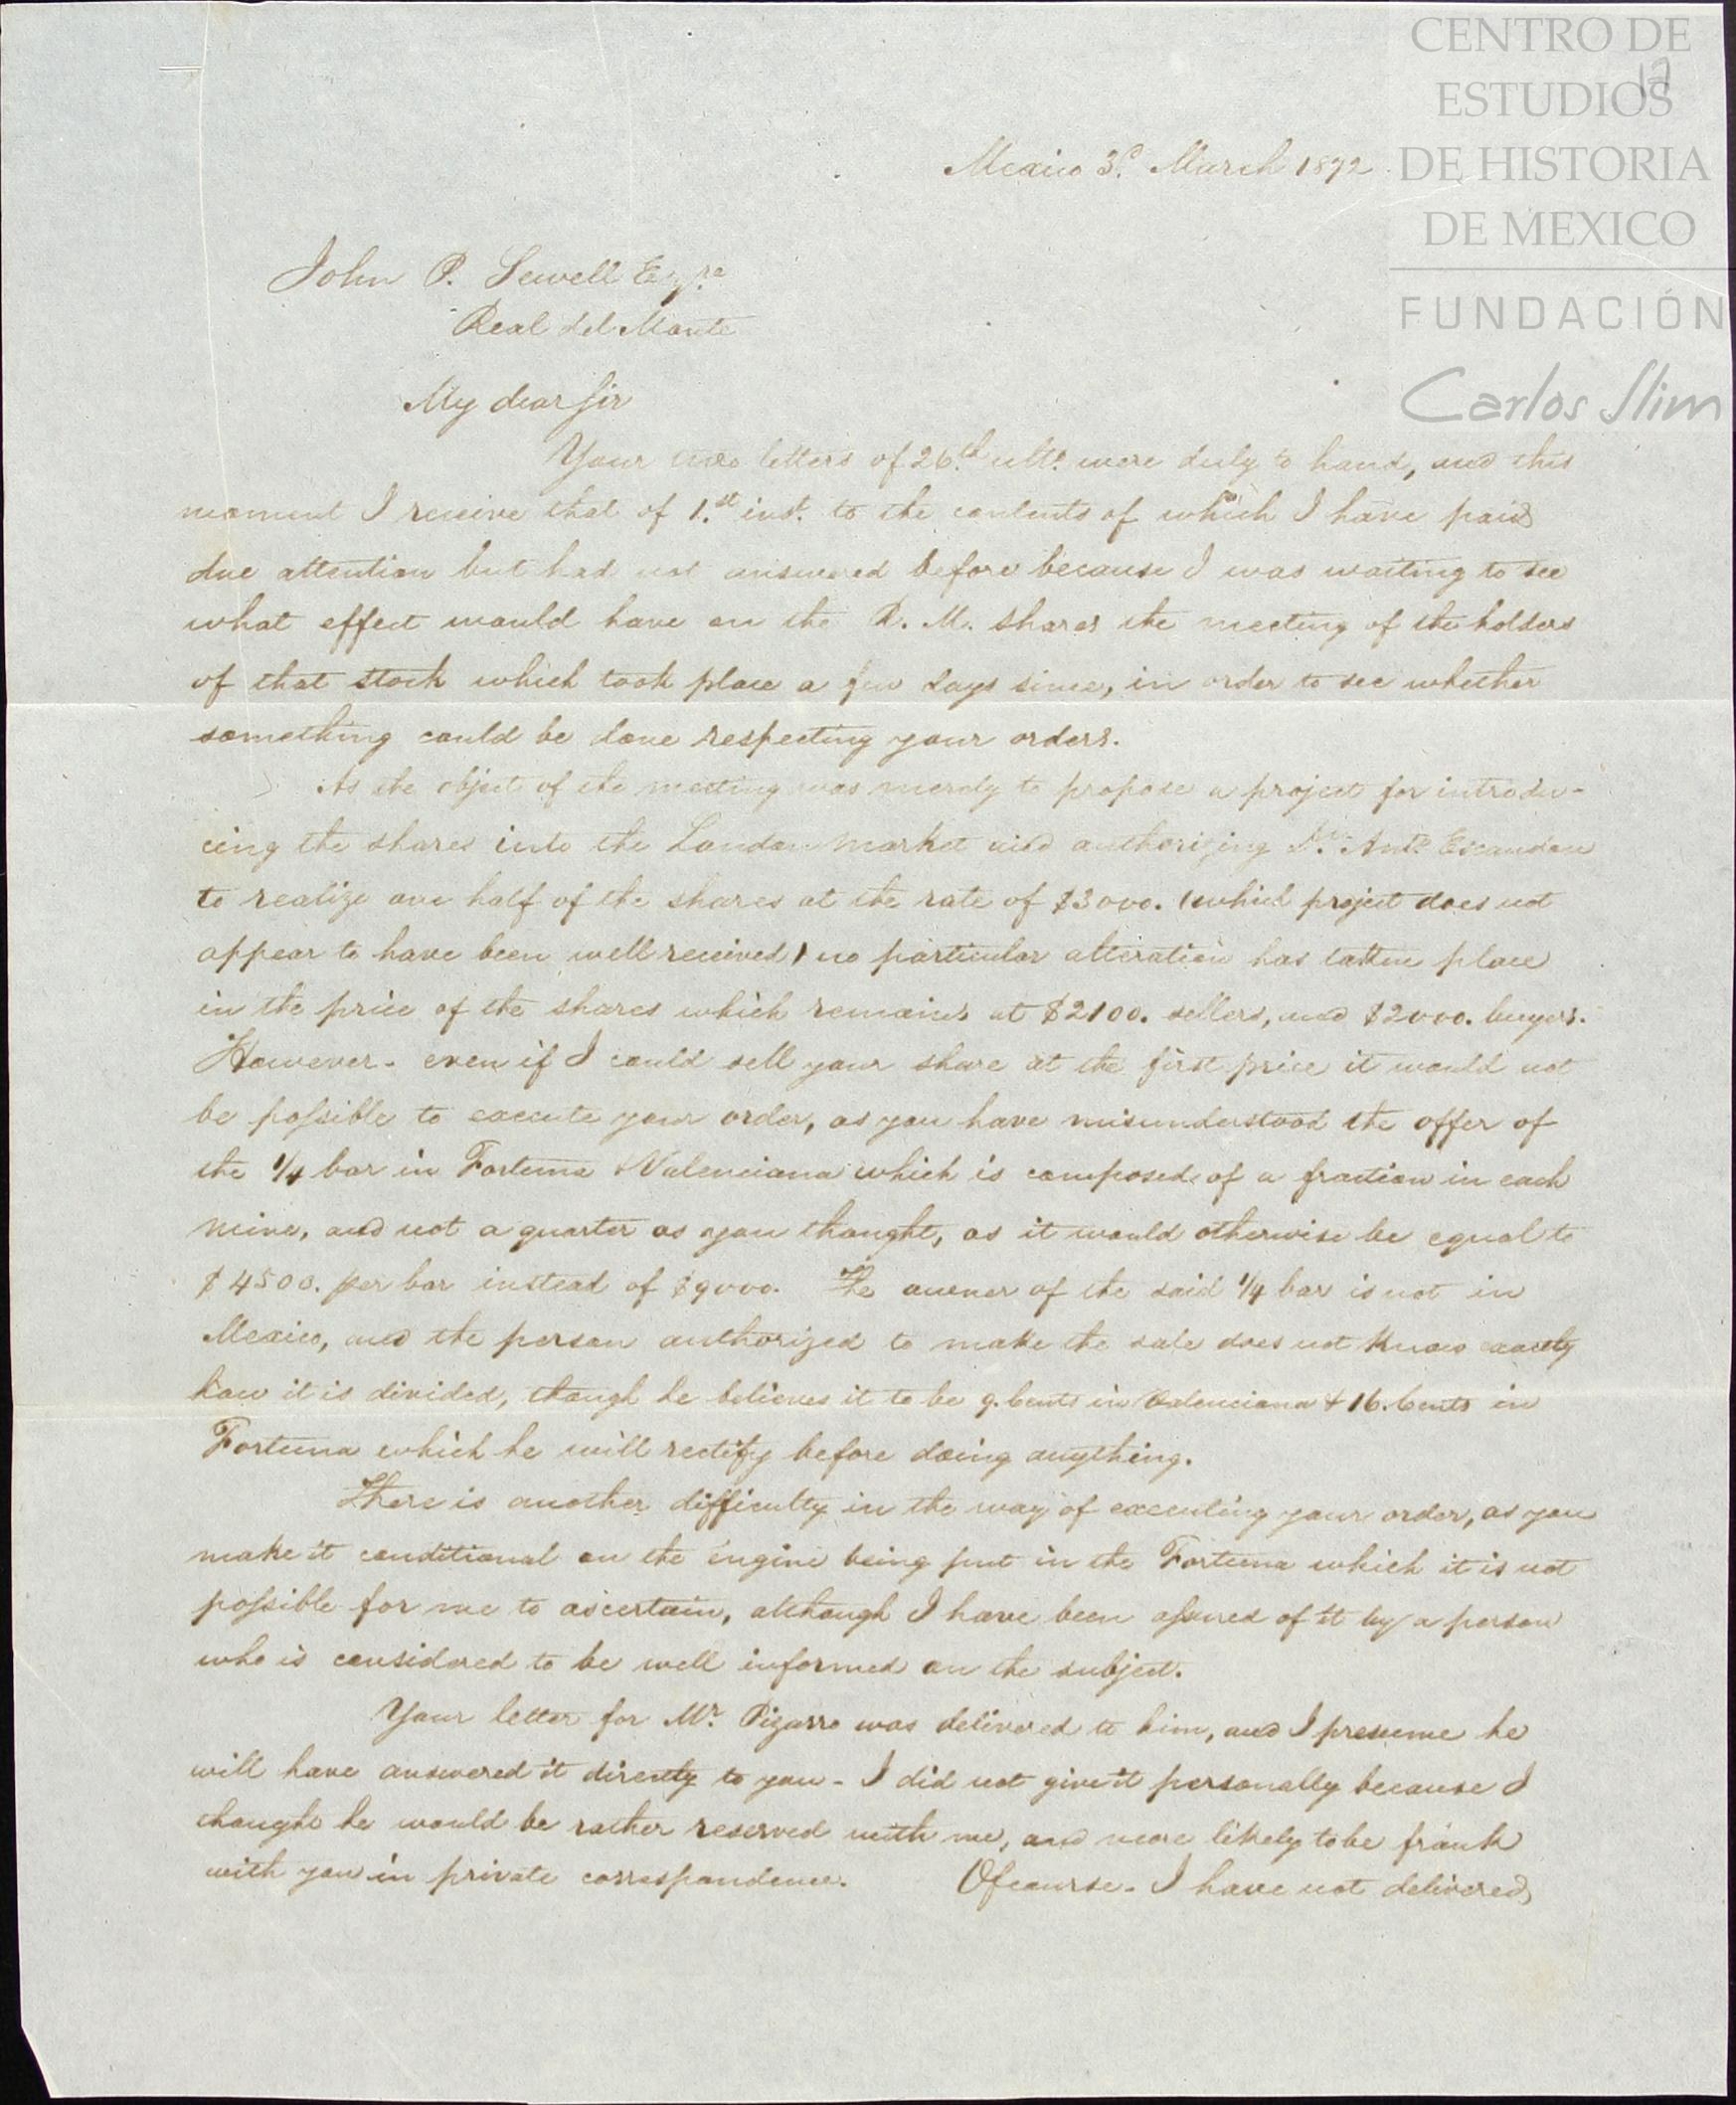 CENTRO DE
ESTUDIOS
DE HISTORIA
DE MEXICO
FUNDACIÓN
Carlos Slim
12
Mexico 3.d March 1872
John P. Sewell Esqre
Real del Monte
My dear Sir
Your two letters of 26.th ulto. were duly to hand, and this
moment I receive that of 1.st inst. to the contents of which I have paid
due attention but had not answered before because I was waiting to see
what effect would have on the R. M. shares the meeting of the holders
of that stock which took place a few days since, in order to see whether
something could be done respecting your orders.
As the object of the meeting was merely to propose a project for introdu-
cing the shares into the London market and authorizing Dn. Anto. Escandon
to realize one half of the shares at the rate of $3000. (which project does not
appear to have been well received) no particular alteration has taken place
in the price of the shares which remains at $2100. sellers, and $2000. buyers.
However - even if I could sell your share at the first price it would not
be possible to execute your order, as you have misunderstood the offer of
the 1/4 bar in Fortuna & Valenciana which is composed of a fraction in each
mine, and not a quarter as you thought, as it would otherwise be equal to
$4500. per bar instead of $9000. The owner of the said 1/4 bar is not in
Mexico, and the person authorized to make the sale does not know exactly
how it is divided, though he believes it to be 9. cents in Valenciana & 16. cents in
Fortuna which he will rectify before doing anything.
There is another difficulty in the way of executing your order, as you
make it conditional on the engine being put in the Fortuna which it is not
possible for me to ascertain, although I have been assured of it by a person
who is considered to be well informed on the subject.
Your letter for Mr. Pizarro was delivered to him, and I presume he
will have answered it directly to you - I did not give it personally because I
thought he would be rather reserved with me, and more likely to be frank
with you in private correspondence. Of course - I have not delivered